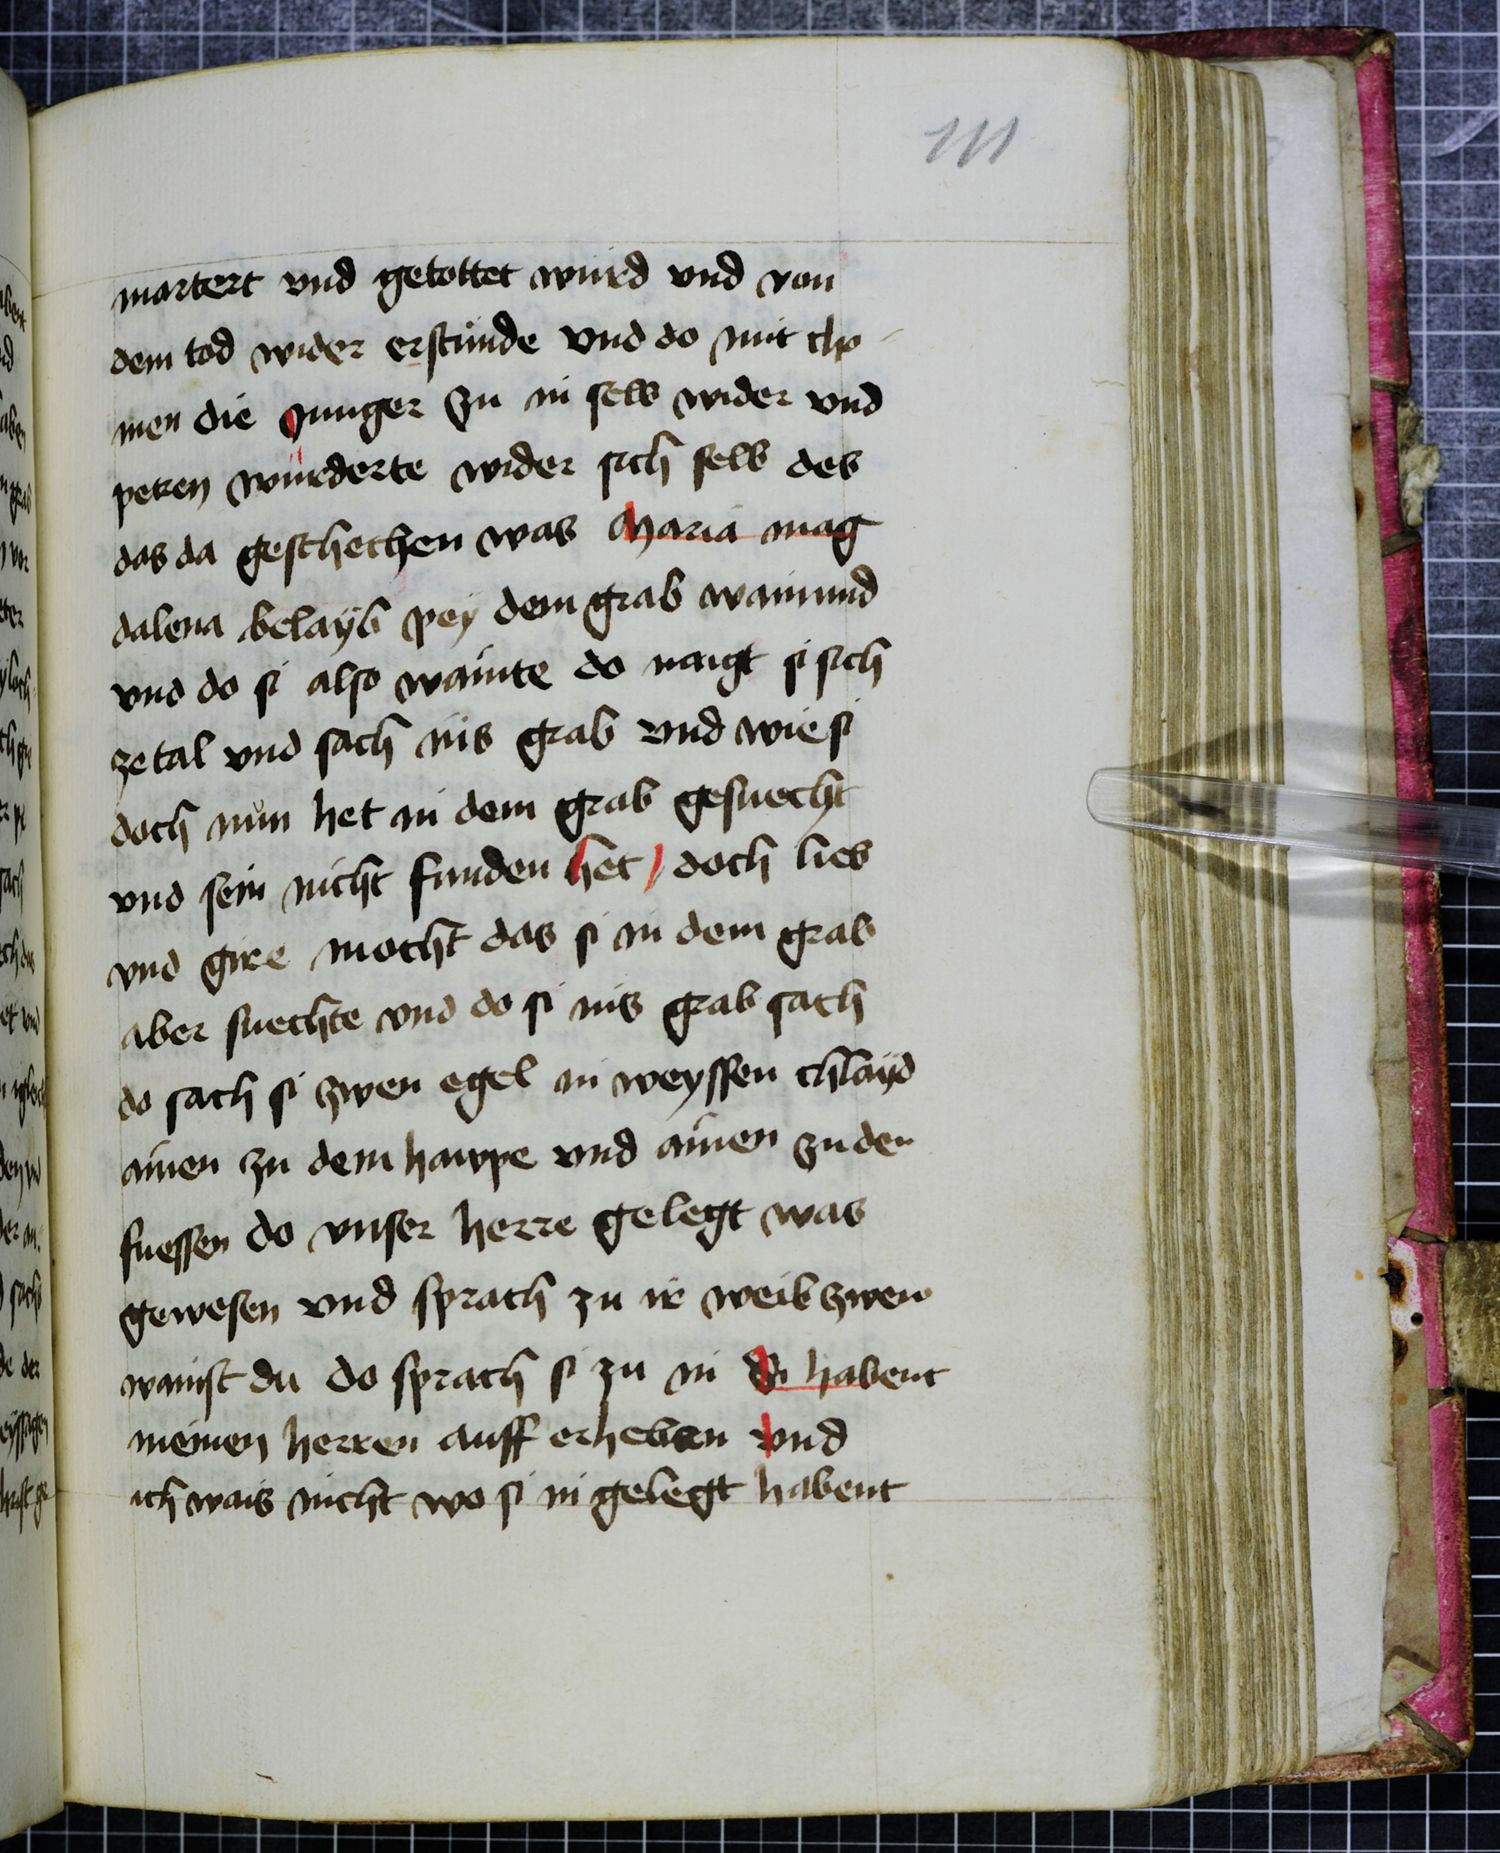 111
martert vnd getottet wurd vnd von
dem tod wider erstunde vnd do mit cho
men die Junger zu in selb wider vnd
peten wurderte wider sich selb des
das da geschechen was Maria mag
dalena belayb pey dem grab wainund
vnd do si also wainte do naigt si sich
zetal vnd sach ins grab vnd wie si
doch nun het in dem grab gesuecht
vnd sein nicht funden het / doch lieb
vnd gire mocht das si in dem grab
aber suechte vnd do si ins grab sach
do sach si zwen egel in weyssen chlayd
ainen zu dem hawpe vnd ainen zu den
fuessen do vnser herre gelegt was
gewesen vnd sprach zu ir weib zwew
wainst du do sprach si zu in Si habent
meinen herren auff erheben vnd
ich wais nicht wo si in gelegt habent